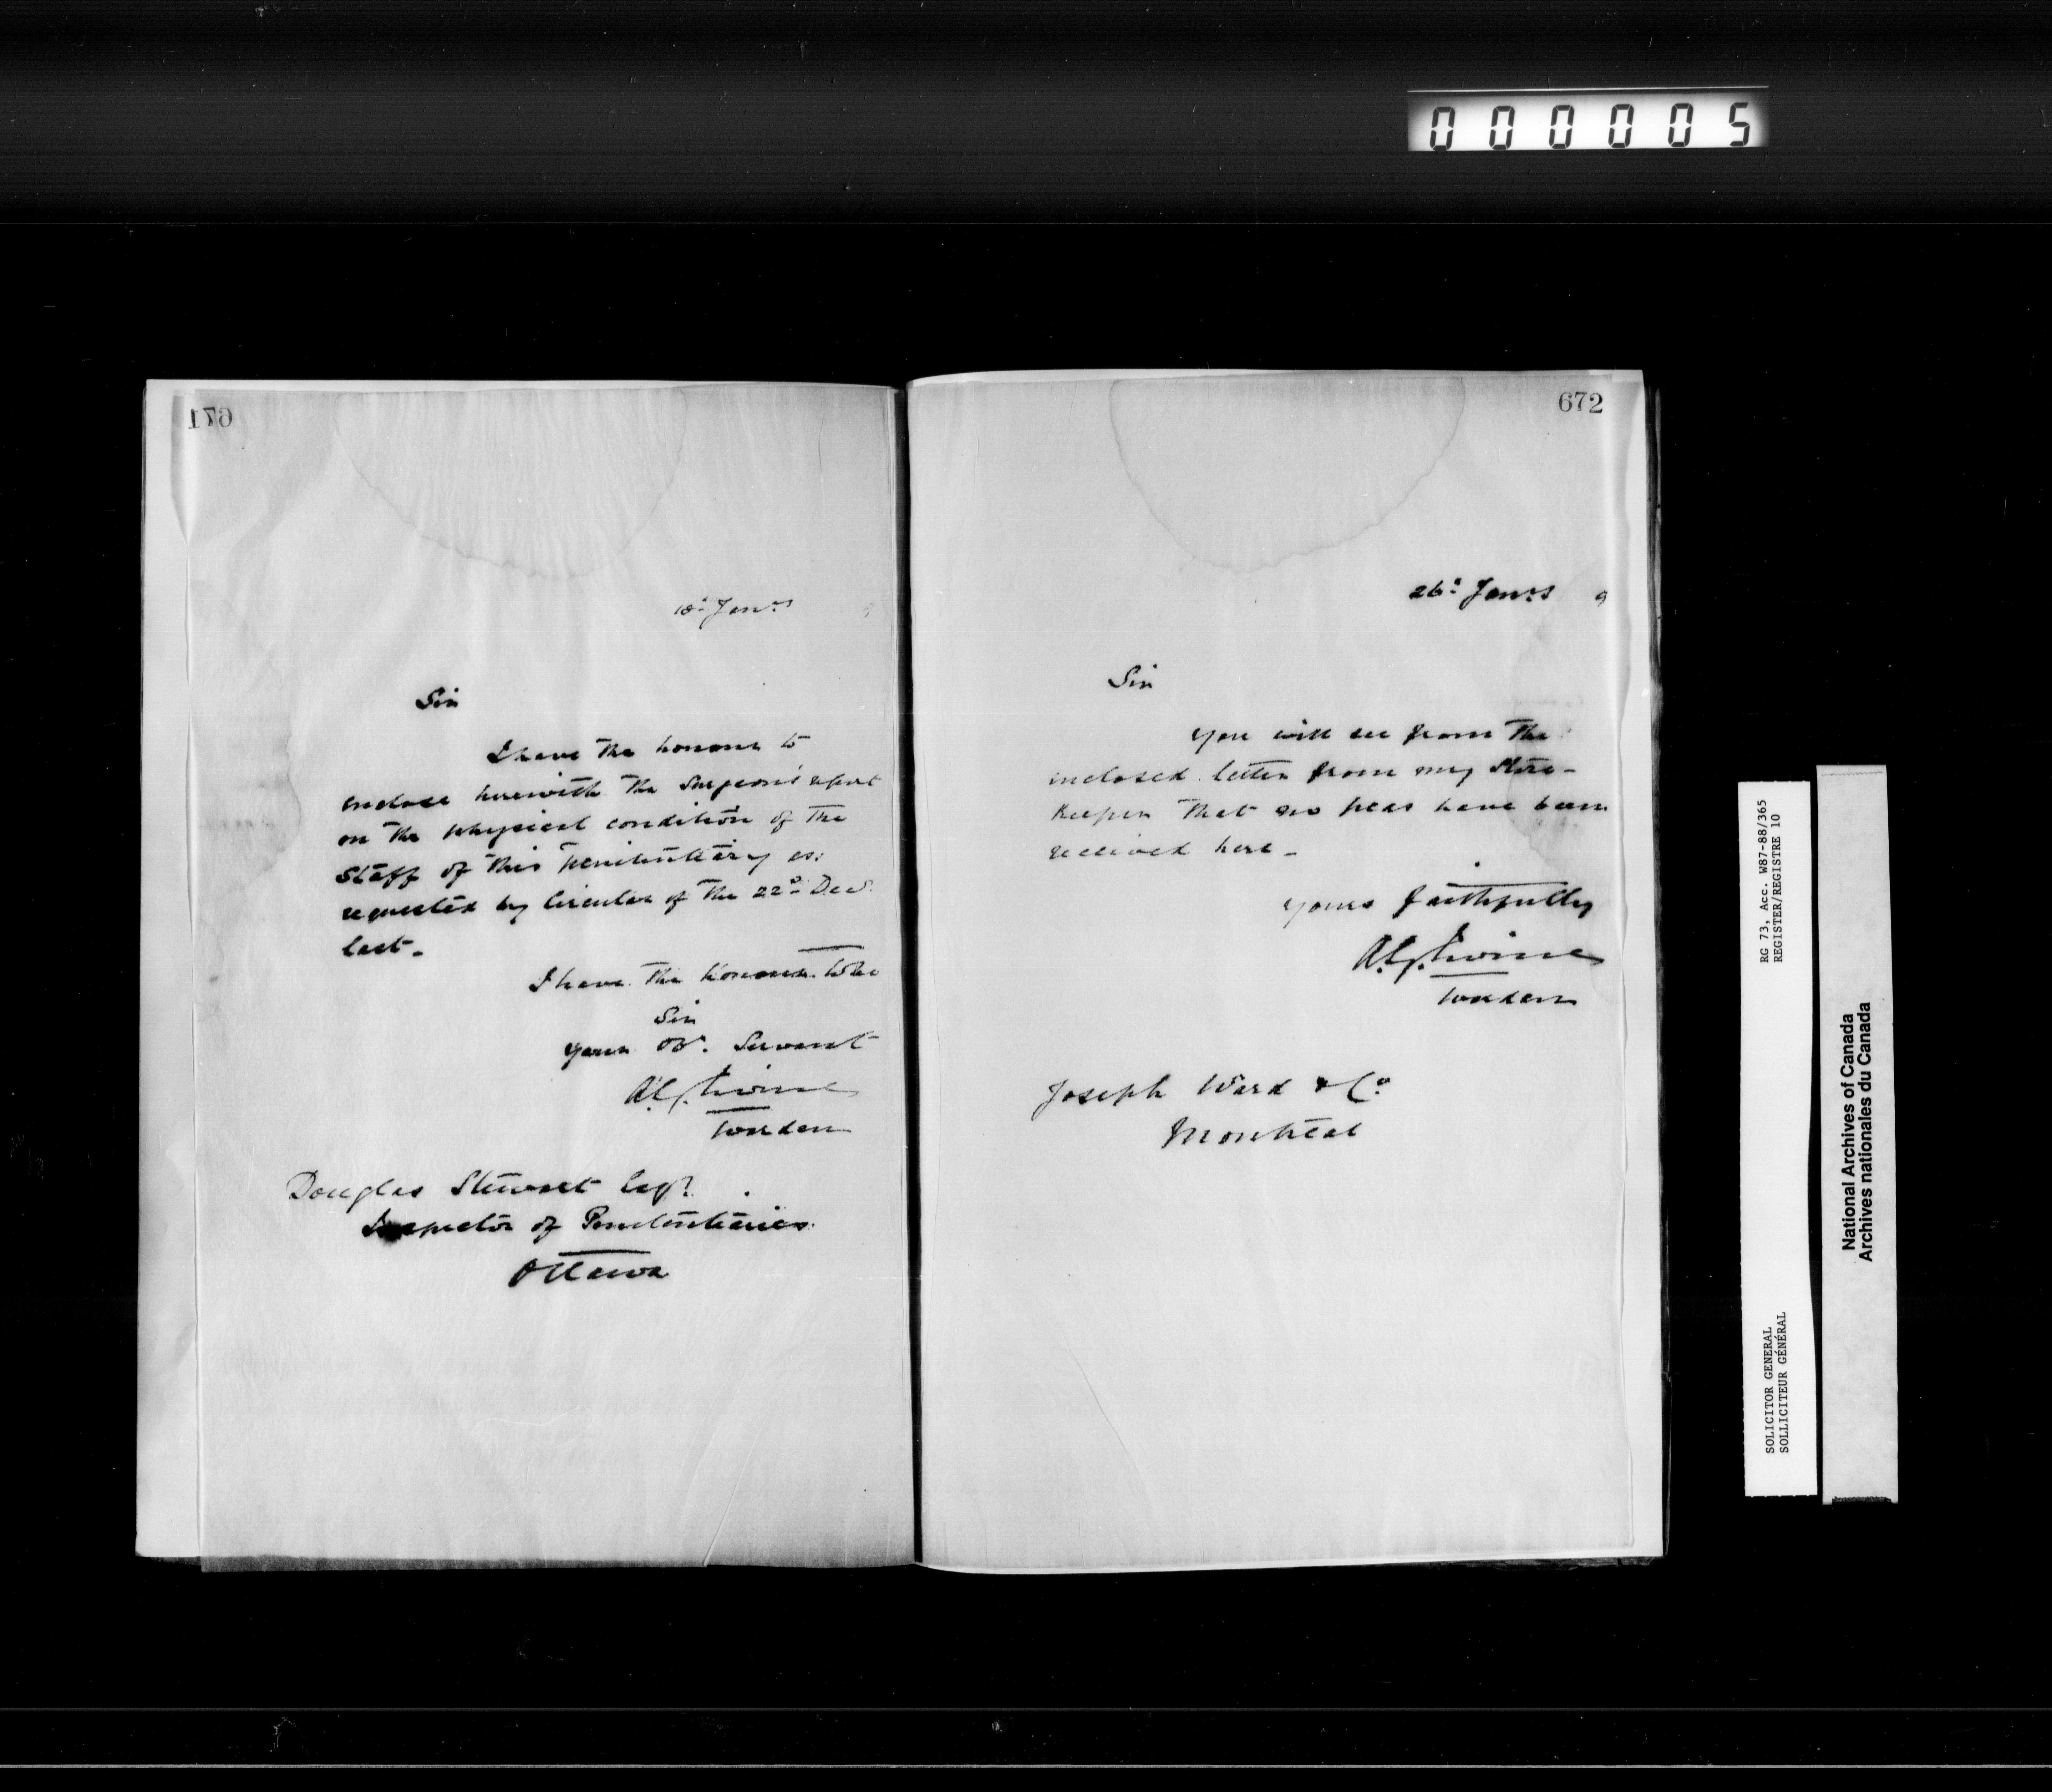 000005
671
18th Jany 9
Sir
I have the honour to
enclose herewith the Surgeon's report
on the physical condition of the
Staff of this Penitentiary as
requested by Circular of the 22d Decr
last.
I have the honour to be
Sir
Your Obt. Servant
A.G. Irvine
Warden
Douglas Stewart Esqr.
Inspector of Penitentiaries
Ottawa
672
26th Jany 9
Sir
You will see from the
inclosed letter from my Store-
keeper that no peas have been
received here -
Yours faithfully
A.G. Irvine
Warden
Joseph Ward & Co
Montreal
SOLICITOR GENERAL RG 73, Acc. W87-88/365
SOLLICITEUR GÉNÉRAL REGISTER/REGISTRE 10
National Archives of Canada
Archives nationales du Canada